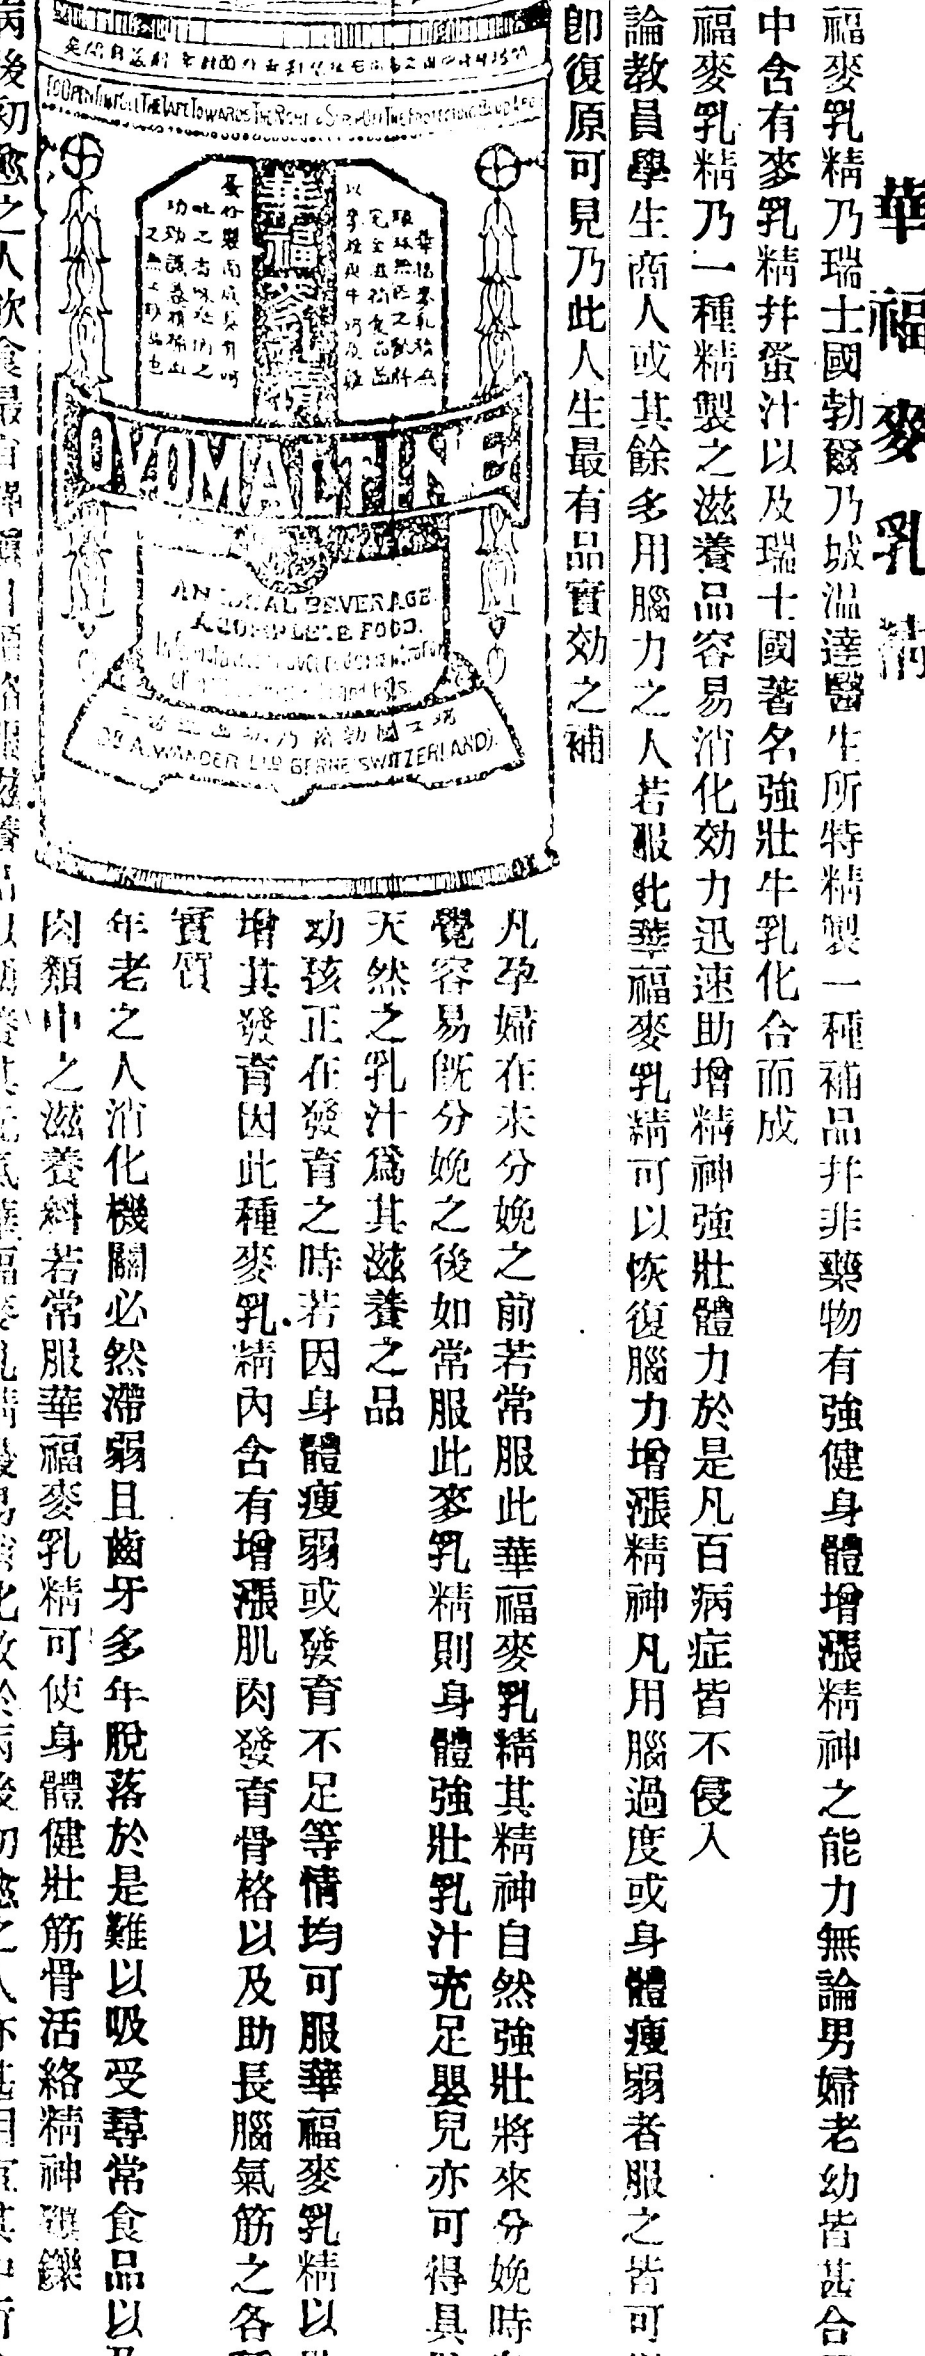 華福麥乳精
福麥乳精乃瑞士國勃爾乃城溫達醫生所特精製一種補品并非藥物有強健身體增漲精神之能力無論男婦老幼皆甚合
中含有麥乳精并蛋汁以及瑞士國著名強壯牛乳化合而成
福麥乳精乃一種精製之滋養品容易消化効力迅速助增精神強壯體力於是凡百病症皆不侵入
論教員學生商人或其餘多用腦力之人若服此華福麥乳精可以恢復腦力增漲精神凡用腦過度或身體瘦弱者服之皆可
卽復原可見乃此人生最有品實効之補
TO OPEN TIN PULL THE TAPE TOWARDS THE RIGHT & STRIP OFF THE PROTECTING BAND
華福麥乳精
OVOMALTINE
AN IDEAL BEVERAGE.
A COMPLETE FOOD.
DR A. WANDER LTD BERNE (SWITZERLAND).
凡孕婦在未分娩之前若常服此華福麥乳精其精神自然強壯將來分娩時
覺容易旣分娩之後如常服此麥乳精則身體強壯乳汁充足嬰兒亦可得具
天然之乳汁爲其滋養之品
幼孩正在發育之時若因身體瘦弱或發育不足等情均可服華福麥乳精以
增其發育因此種麥乳精內含有增漲肌肉發育骨格以及助長腦氣筋之各
實質
年老之人消化機關必然滯弱且齒牙多年脫落於是難以吸受尋常食品以
肉類中之滋養料若常服華福麥乳精可使身體健壯筋骨活絡精神鑠
病後初愈之人飲食最宜